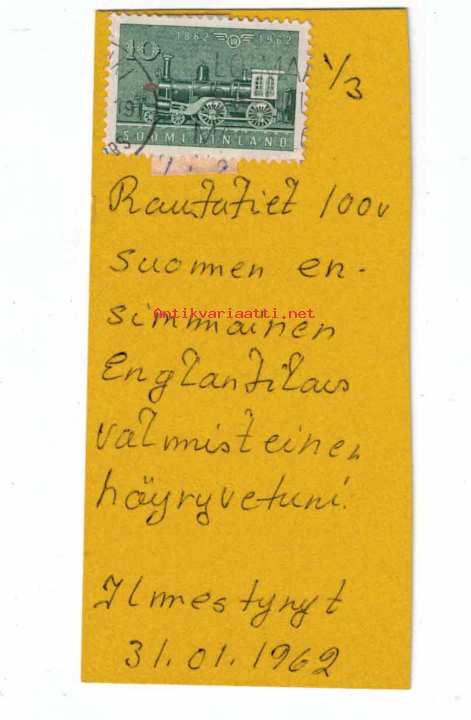 1862 1962
10
SUOMI-FINLAND
1/3
Rautatiet 100v
Suomen en-
simmäinen
Antikvariaatti.net
Englantilais
valmisteinen
höyryveturi.
Ilmestynyt
31.01.1962